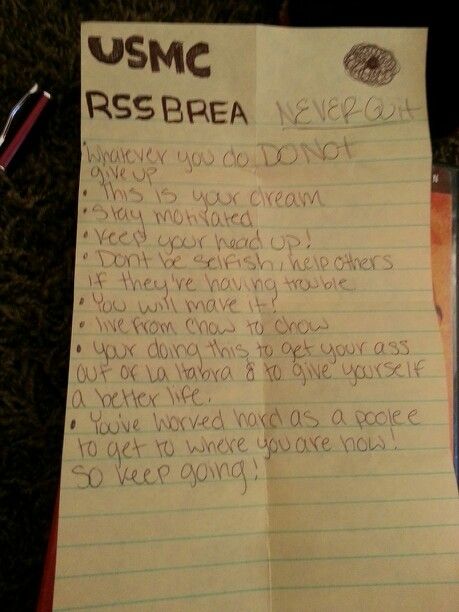 USMC
RSS BREA NEVER QUIT
• Whatever you do DO NOT
give up
• This is your dream
• Stay motivated
• Keep your head up!
• Dont be selfish, help others
if they're having trouble
• You will make it!
• live from chow to chow
• Your doing this to get your ass
out of La Habra & to give yourself
a better life.
• You've worked hard as a poolee
to get to where you are now!
So keep going!